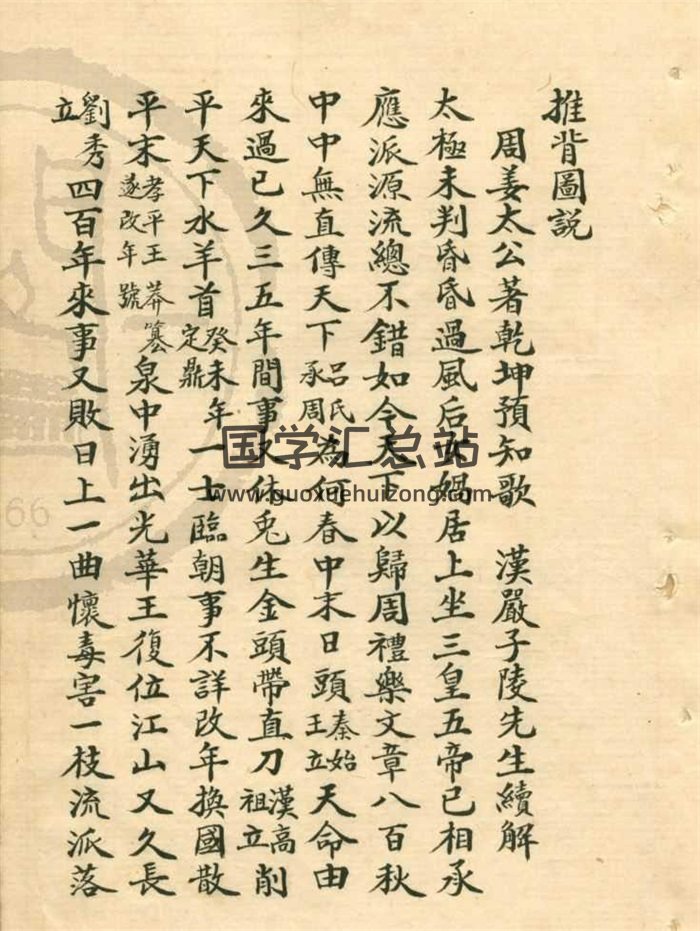 推背圖説
周姜太公著乾坤預知歌　漢嚴子陵先生續解
太極未判昏昏過風后女媧居上坐三皇五帝已相承
應派源流總不錯如今天下以歸周禮樂文章八百秋
中中無直傳天下呂氏承周為何春中末日頭秦始王立天命由
來過已久三五年間事又休兎生金頭帶直刀漢高祖立削
平天下水羊首癸未年定鼎一士臨朝事不詳改年換國散
平末孝平王莽簒遂改年號泉中湧出光華王復位江山又久長
劉秀立四百年來事又敗日上一曲懷毒害一枝流派落
国学汇总站
www.guoxuehuizong.com
66